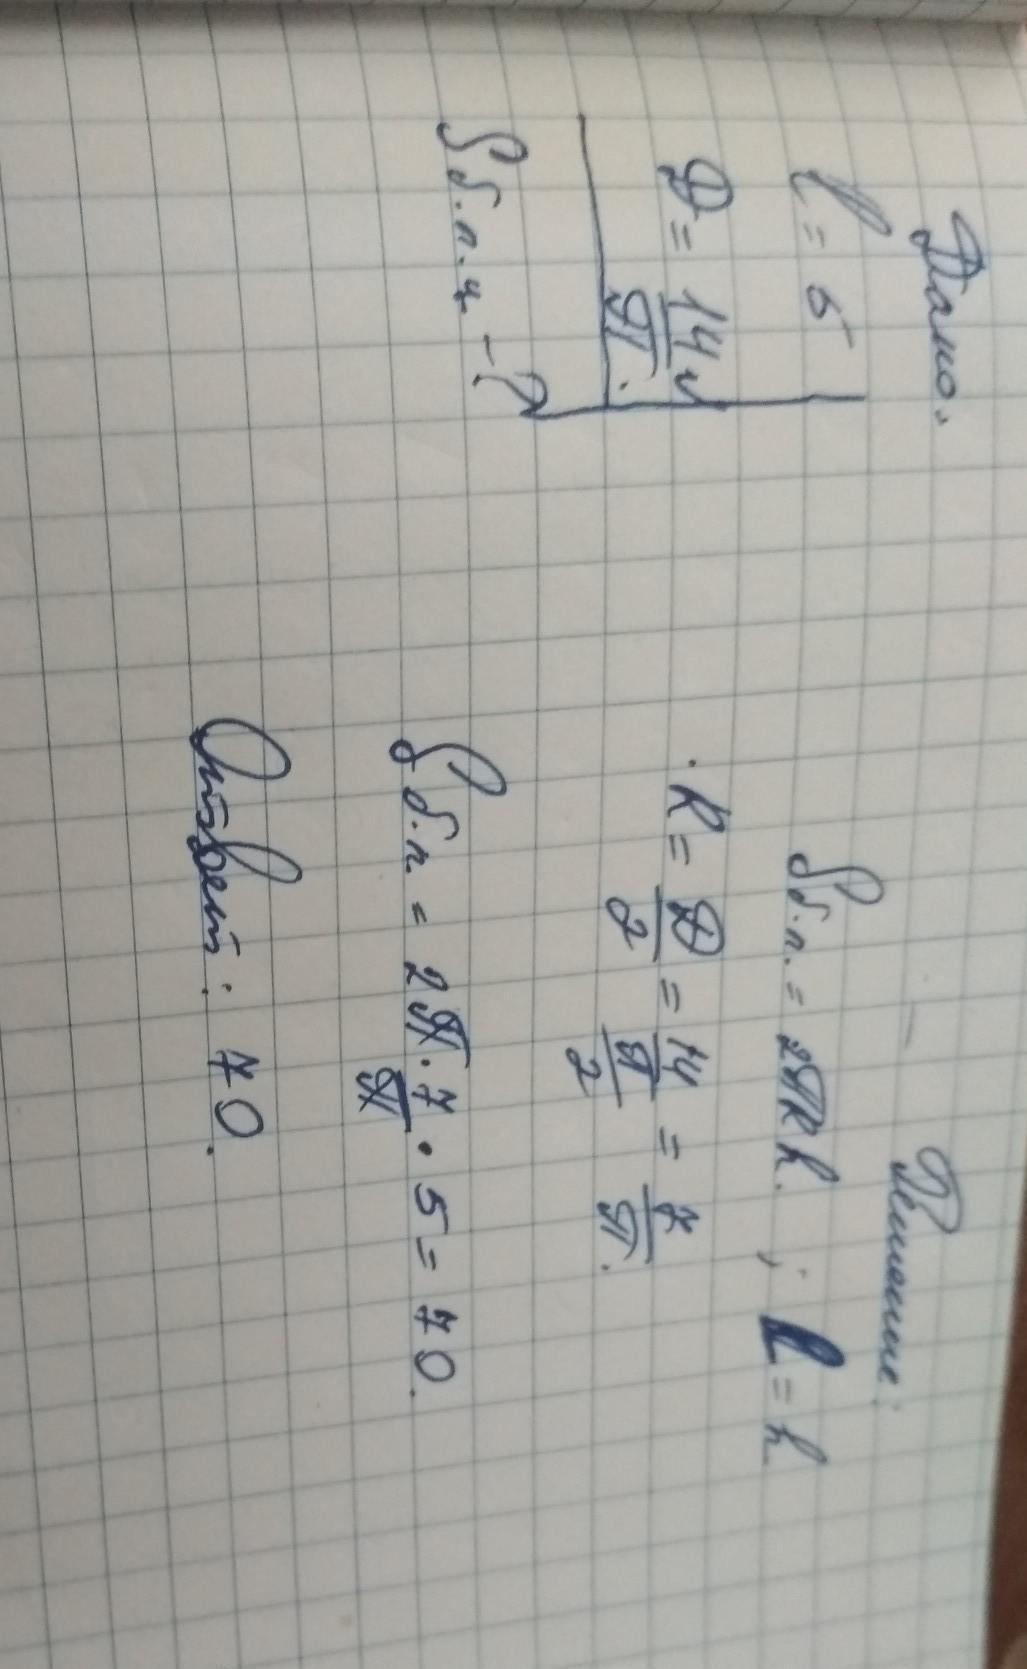 Дано.
l = 5
D = 14/π.
Sб.п.ц. - ?
Решение:
Sб.п. = 2πRh. ; l = h
R = D/2 = 14/π/2 = 7/π.
Sб.п. = 2π · 7/π · 5 = 70.
Ответ: 70.